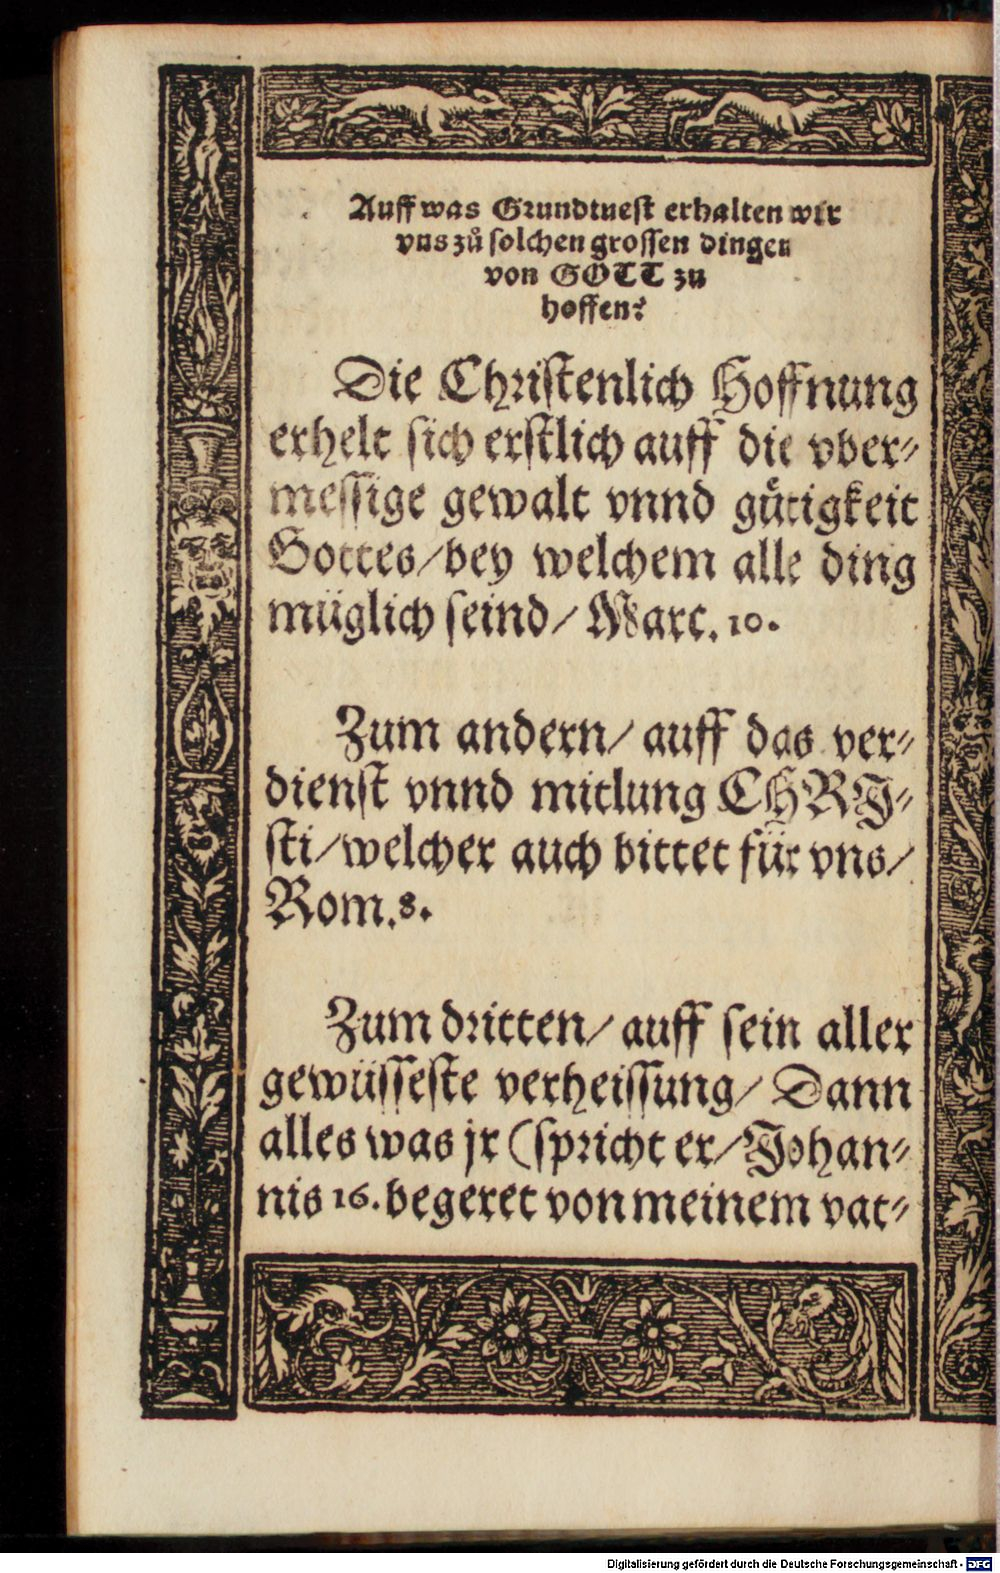 Auff was Grundtuest erhalten wir
vns zů solchen grossen dingen
von GOTT zu
hoffen?
Die Christenlich Hoffnung
erhelt sich erstlich auff die vber⸗
messige gewalt vnnd gütigkeit
Gottes/ bey welchem alle ding
müglich seind/ Marc. 10.
Zum andern/ auff das ver⸗
dienst vnnd mitlung CHRJ⸗
sti/ welcher auch bittet für vns/
Rom. 8.
Zum dritten/ auff sein aller
gewüsseste verheissung/ Dann
alles was jr (spricht er/ Johan⸗
nis 16. begeret von meinem vat⸗
Digitalisierung gefördert durch die Deutsche Forschungsgemeinschaft - DFG